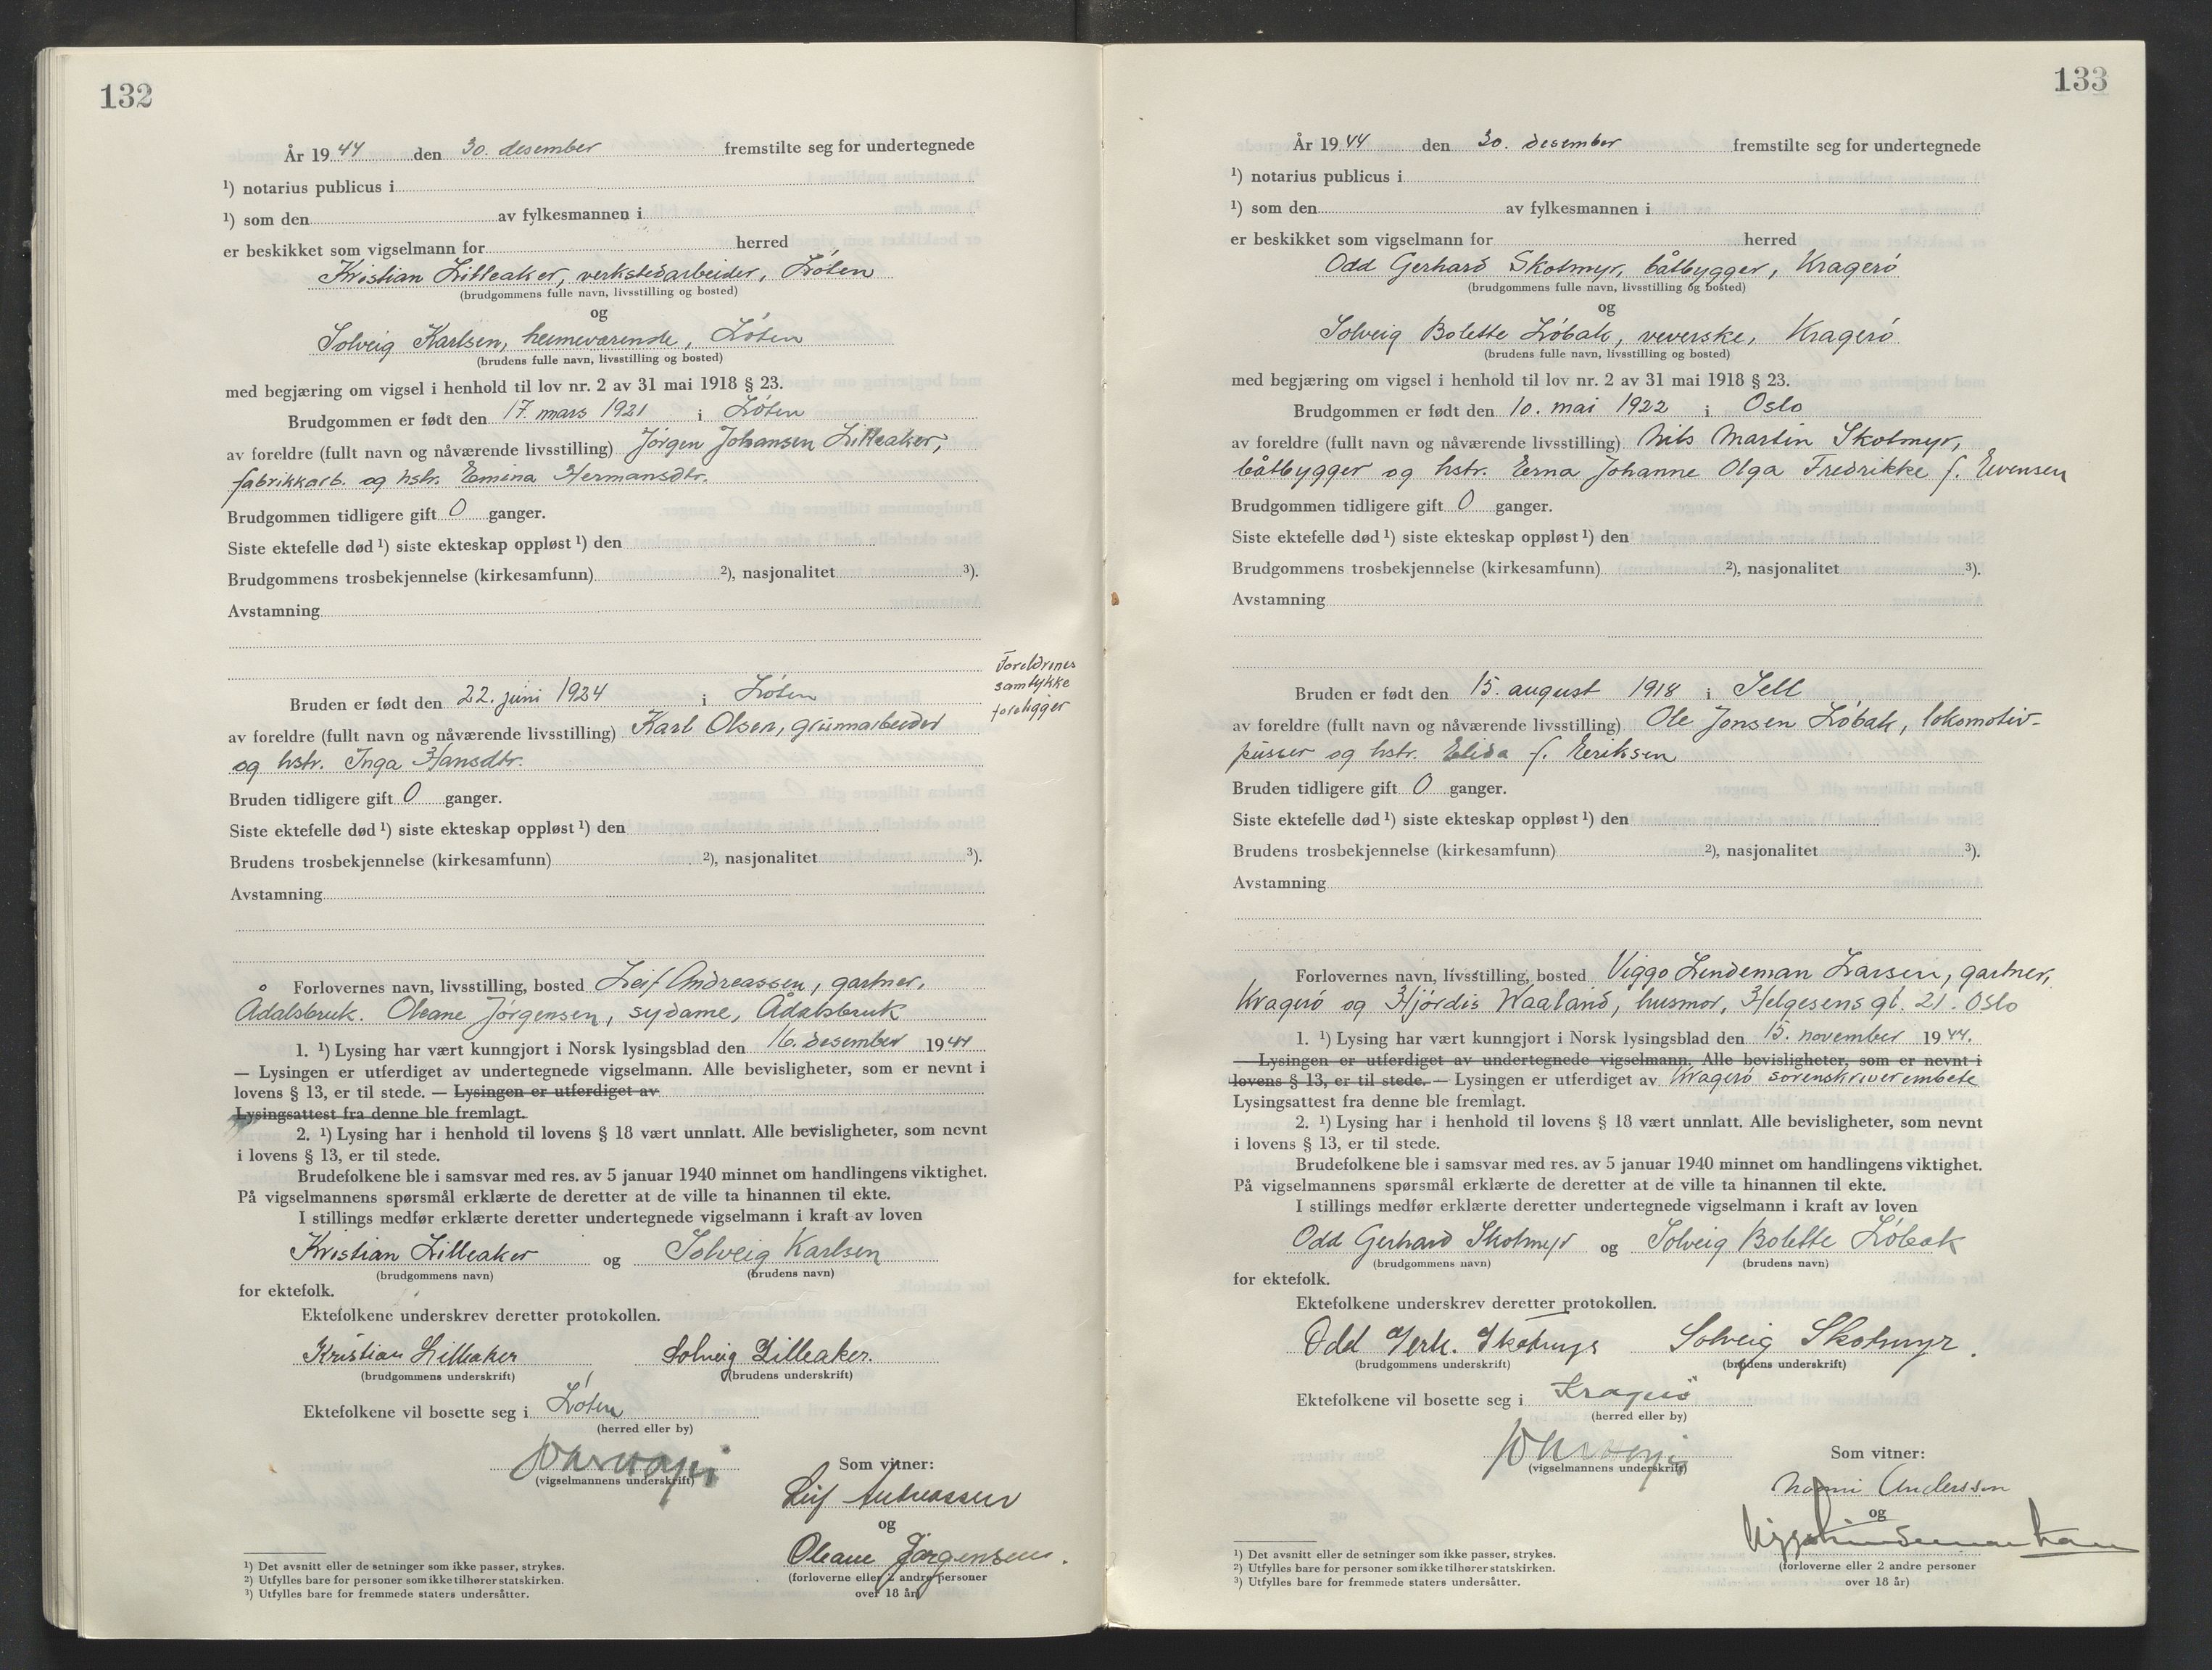 132
År 1944 den 30. desember fremstilte seg for undertegnede
¹) notarius publicus i
¹) som den av fylkesmannen i
er beskikket som vigselmann for herred
Kristian Lilleaker, verkstedarbeider, Løten
(brudgommens fulle navn, livsstilling og bosted)
og
Solveig Karlsen, heimeværende, Løten
(brudens fulle navn, livsstilling og bosted)
med begjæring om vigsel i henhold til lov nr. 2 av 31 mai 1918 § 23.
Brudgommen er født den 17. mars 1921 i Løten
av foreldre (fullt navn og nåværende livsstilling) Jörgen Johansen Lilleaker,
fabrikkarb. og hstr. Emina Hermansdtr.
Brudgommen tidligere gift 0 ganger.
Siste ektefelle død ¹) siste ekteskap oppløst ¹) den
Brudgommens trosbekjennelse (kirkesamfunn) ²), nasjonalitet ³).
Avstamning
Foreldrenes
samtykke
foreligger
Bruden er født den 22. juni 1924 i Løten
av foreldre (fullt navn og nåværende livsstilling) Karl Olsen, grunnarbeider
og hstr. Inga Hansdtr.
Bruden tidligere gift 0 ganger.
Siste ektefelle død ¹) siste ekteskap oppløst ¹) den
Brudens trosbekjennelse (kirkesamfunn) ²), nasjonalitet ³).
Avstamning
Forlovernes navn, livsstilling, bosted Leif Andreassen, gartner,
Ådalsbruk. Oleane Jørgensen, sydame, Ådalsbruk
1. ¹) Lysing har vært kunngjort i Norsk lysingsblad den 16. desember 1944
— Lysingen er utferdiget av undertegnede vigselmann. Alle bevisligheter, som er nevnt i
lovens § 13, er til stede. — Lysingen er utferdiget av
Lysingsattest fra denne ble fremlagt.
2. ¹) Lysing har i henhold til lovens § 18 vært unnlatt. Alle bevisligheter, som nevnt
i lovens § 13, er til stede.
Brudefolkene ble i samsvar med res. av 5 januar 1940 minnet om handlingens viktighet.
På vigselmannens spørsmål erklærte de deretter at de ville ta hinannen til ekte.
I stillings medfør erklærte deretter undertegnede vigselmann i kraft av loven
Kristian Lilleaker og Solveig Karlsen
(brudgommens navn) (brudens navn)
for ektefolk.
Ektefolkene underskrev deretter protokollen.
Kristian Lilleaker Solveig Lilleaker.
(brudgommens underskrift) (brudens underskrift)
Ektefolkene vil bosette seg i Løten
(herred eller by)
(vigselmannens underskrift)
Som vitner:
Leif Andreassen
og
Oleane Jørgensen.
(forloverne eller 2 andre personer
over 18 år)
¹) Det avsnitt eller de setninger som ikke passer, strykes.
²) Utfylles bare for personer som ikke tilhører statskirken.
³) Utfylles bare for fremmede staters undersåtter.
133
År 1944 den 30. desember fremstilte seg for undertegnede
¹) notarius publicus i
¹) som den av fylkesmannen i
er beskikket som vigselmann for herred
Odd Gerhard Skotmyr, båtbygger, Kragerø
(brudgommens fulle navn, livsstilling og bosted)
og
Solveig Bolette Løbak, veverske, Kragerø
(brudens fulle navn, livsstilling og bosted)
med begjæring om vigsel i henhold til lov nr. 2 av 31 mai 1918 § 23.
Brudgommen er født den 10. mai 1922 i Oslo
av foreldre (fullt navn og nåværende livsstilling) Nils Martin Skotmyr,
båtbygger og hstr. Erna Johanne Olga Fredrikke f. Evensen
Brudgommen tidligere gift 0 ganger.
Siste ektefelle død ¹) siste ekteskap oppløst ¹) den
Brudgommens trosbekjennelse (kirkesamfunn) ²), nasjonalitet ³).
Avstamning
Bruden er født den 15. august 1918 i Sell
av foreldre (fullt navn og nåværende livsstilling) Ole Jonsen Løbak, lokomotiv-
pusser og hstr. Elida f. Eriksen
Bruden tidligere gift 0 ganger.
Siste ektefelle død ¹) siste ekteskap oppløst ¹) den
Brudens trosbekjennelse (kirkesamfunn) ²), nasjonalitet ³).
Avstamning
Forlovernes navn, livsstilling, bosted Viggo Lindeman Larsen, gartner,
Kragerø og Hjørdis Waaland, husmor, Helgesens gt. 21. Oslo
1. ¹) Lysing har vært kunngjort i Norsk lysingsblad den 15. november 1944.
— Lysingen er utferdiget av undertegnede vigselmann. Alle bevisligheter, som er nevnt i
lovens § 13, er til stede. — Lysingen er utferdiget av Kragerø sorenskriverembete
Lysingsattest fra denne ble fremlagt.
2. ¹) Lysing har i henhold til lovens § 18 vært unnlatt. Alle bevisligheter, som nevnt
i lovens § 13, er til stede.
Brudefolkene ble i samsvar med res. av 5 januar 1940 minnet om handlingens viktighet.
På vigselmannens spørsmål erklærte de deretter at de ville ta hinannen til ekte.
I stillings medfør erklærte deretter undertegnede vigselmann i kraft av loven
Odd Gerhard Skotmyr og Solveig Bolette Løbak
(brudgommens navn) (brudens navn)
for ektefolk.
Ektefolkene underskrev deretter protokollen.
Odd Gerh. Skotmyr Solveig Skotmyr.
(brudgommens underskrift) (brudens underskrift)
Ektefolkene vil bosette seg i Kragerø
(herred eller by)
(vigselmannens underskrift)
Som vitner:
Andersson
og
Viggo Lindeman Larsen
(forloverne eller 2 andre personer
over 18 år)
¹) Det avsnitt eller de setninger som ikke passer, strykes.
²) Utfylles bare for personer som ikke tilhører statskirken.
³) Utfylles bare for fremmede staters undersåtter.